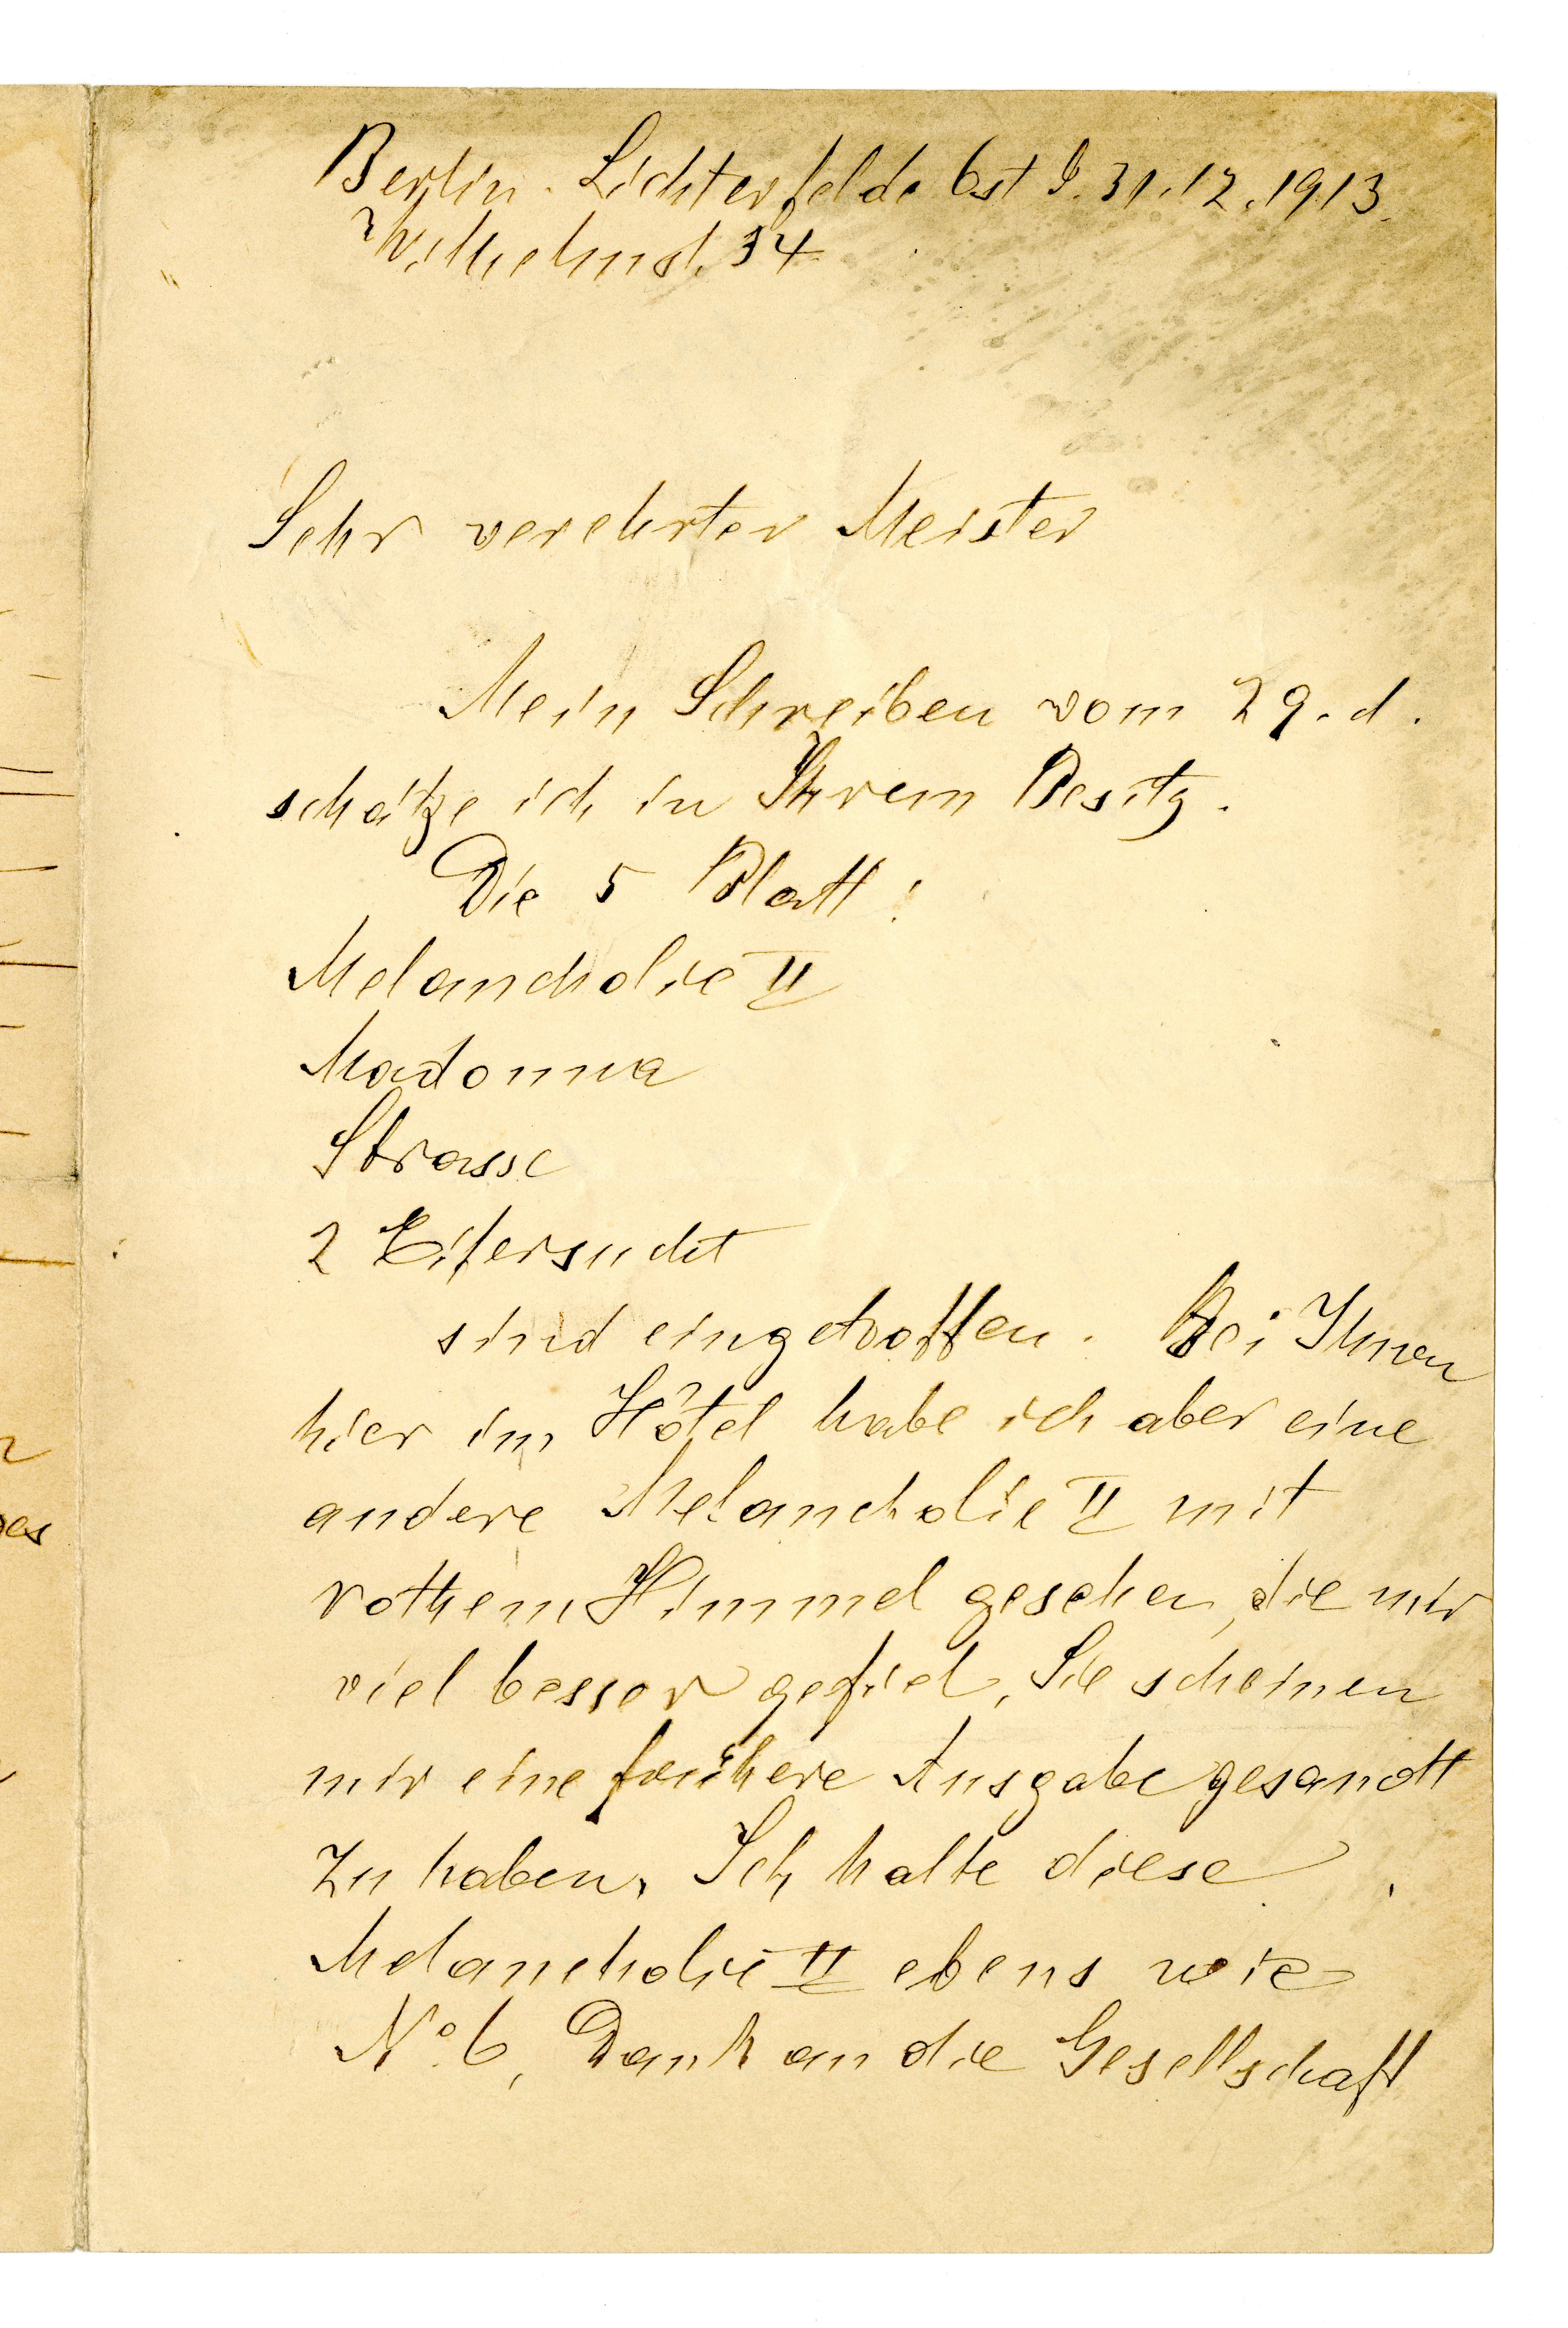 Berlin-Lichterfelde Ost d. 31.12.1913.
Wilhelmst. 34
Sehr verehrter Meister
Mein Schreiben vom 29. d.
schätze ich in Ihrem Besitz.
Die 5 Blatt:
Melancholie II
Madonna
Strasse
2 Eifersucht
sind eingetroffen. Bei Ihnen
hier im Hôtel habe ich aber eine
andere Melancholie II mit
rothem Himmel gesehen, die mir
viel besser gefiel. Sie scheinen
mir eine frühere Ausgabe gesandt
zu haben. Ich halte diese
Melancholie II ebens wie
No. 6, Dank an die Gesellschaft